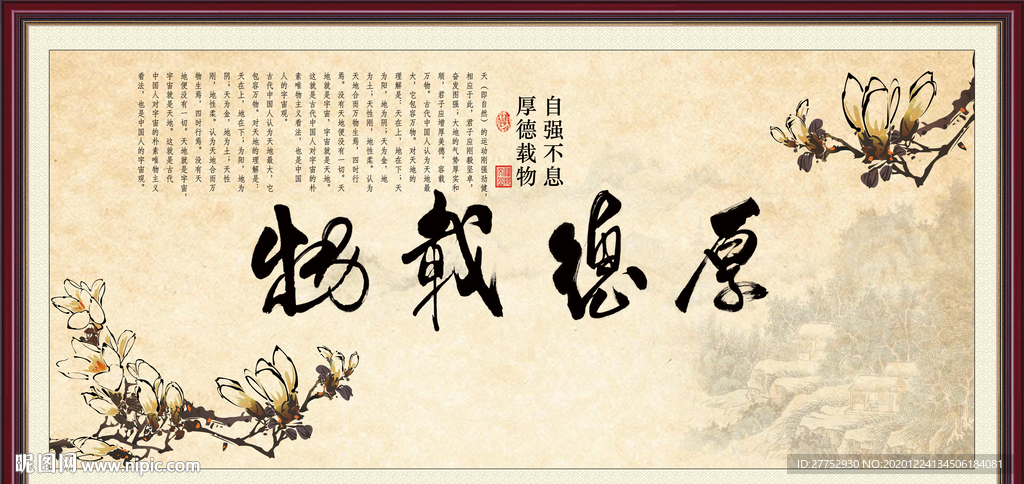 厚德载物
自强不息
厚德载物
天（即自然）的运动刚强劲健，
相应于此，君子应刚毅坚卓，
奋发图强；大地的气势厚实和
顺，君子应增厚美德，容载
万物。古代中国人认为天地最
大，它包容万物。对天地的
理解是：天在上，地在下；天
为阳，地为阴；天为金，地
为土；天性刚，地性柔。认为
天地合而万物生焉，四时行
焉。没有天地便没有一切。天
地就是宇宙，宇宙就是天地。
这就是古代中国人对宇宙的朴
素唯物主义看法，也是中国
人的宇宙观。
古代中国人认为天地最大，它
包容万物。对天地的理解是：
天在上，地在下；为阳，地为
阴；天为金，地为土；天性
刚，地性柔。认为天地合而万
物生焉，四时行焉。没有天
地便没有一切。天地就是宇宙，
宇宙就是天地。这就是古代
中国人对宇宙的朴素唯物主义
看法，也是中国人的宇宙观。
昵图网 www.nipic.com
ID:27752930 NO:20201224134506184081